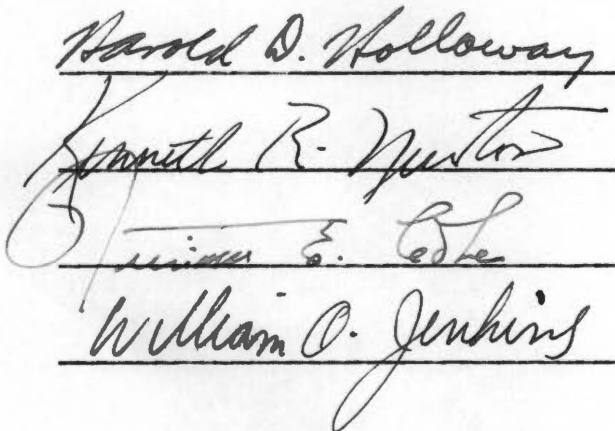 Harold D. Holloway
Kenneth R. Newton
E.
William O. Jenkins